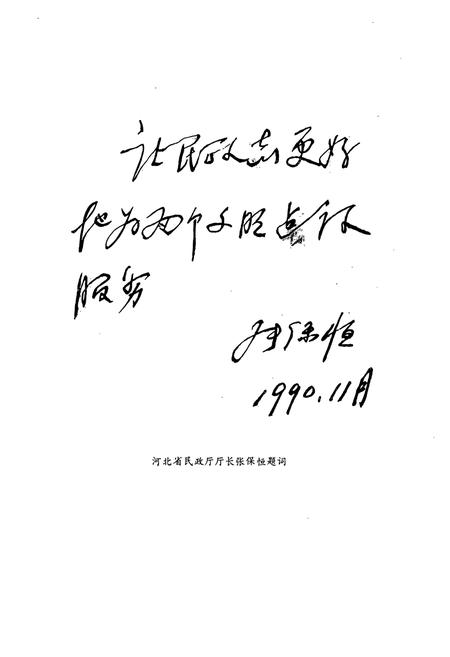 让民政志更好
地为两个文明建设
服务
张保恒
1990.11月
河北省民政厅厅长张保恒题词